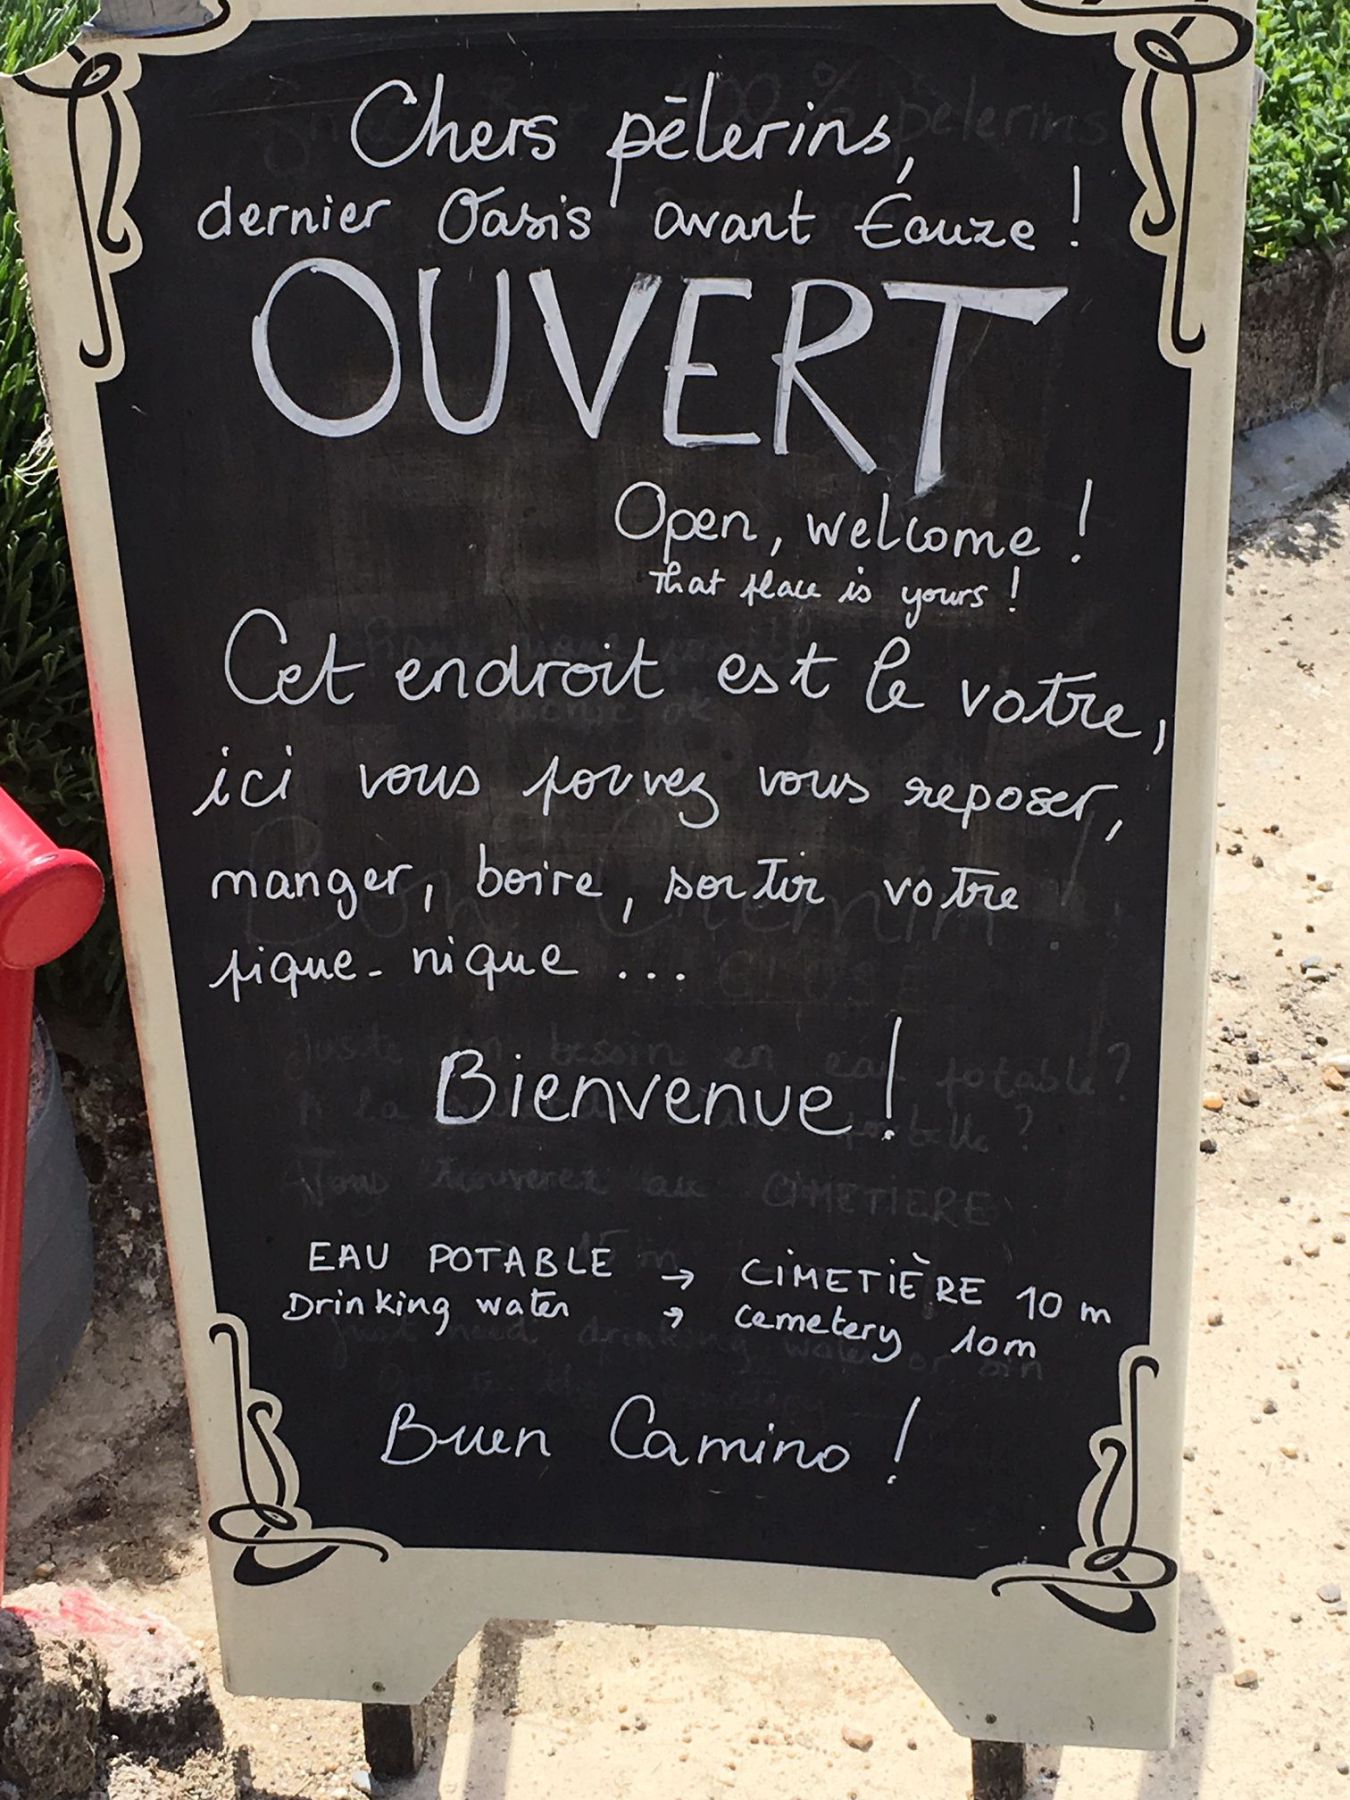 Chers pèlerins,
dernier Oasis avant Eauze !
OUVERT
Open, welcome !
That place is yours !
Cet endroit est le votre,
ici vous pouvez vous reposer,
manger, boire, sortir votre
pique-nique ...
Bienvenue !
EAU POTABLE → CIMETIÈRE 10 m
Drinking water → cemetery 10m
Buen Camino !